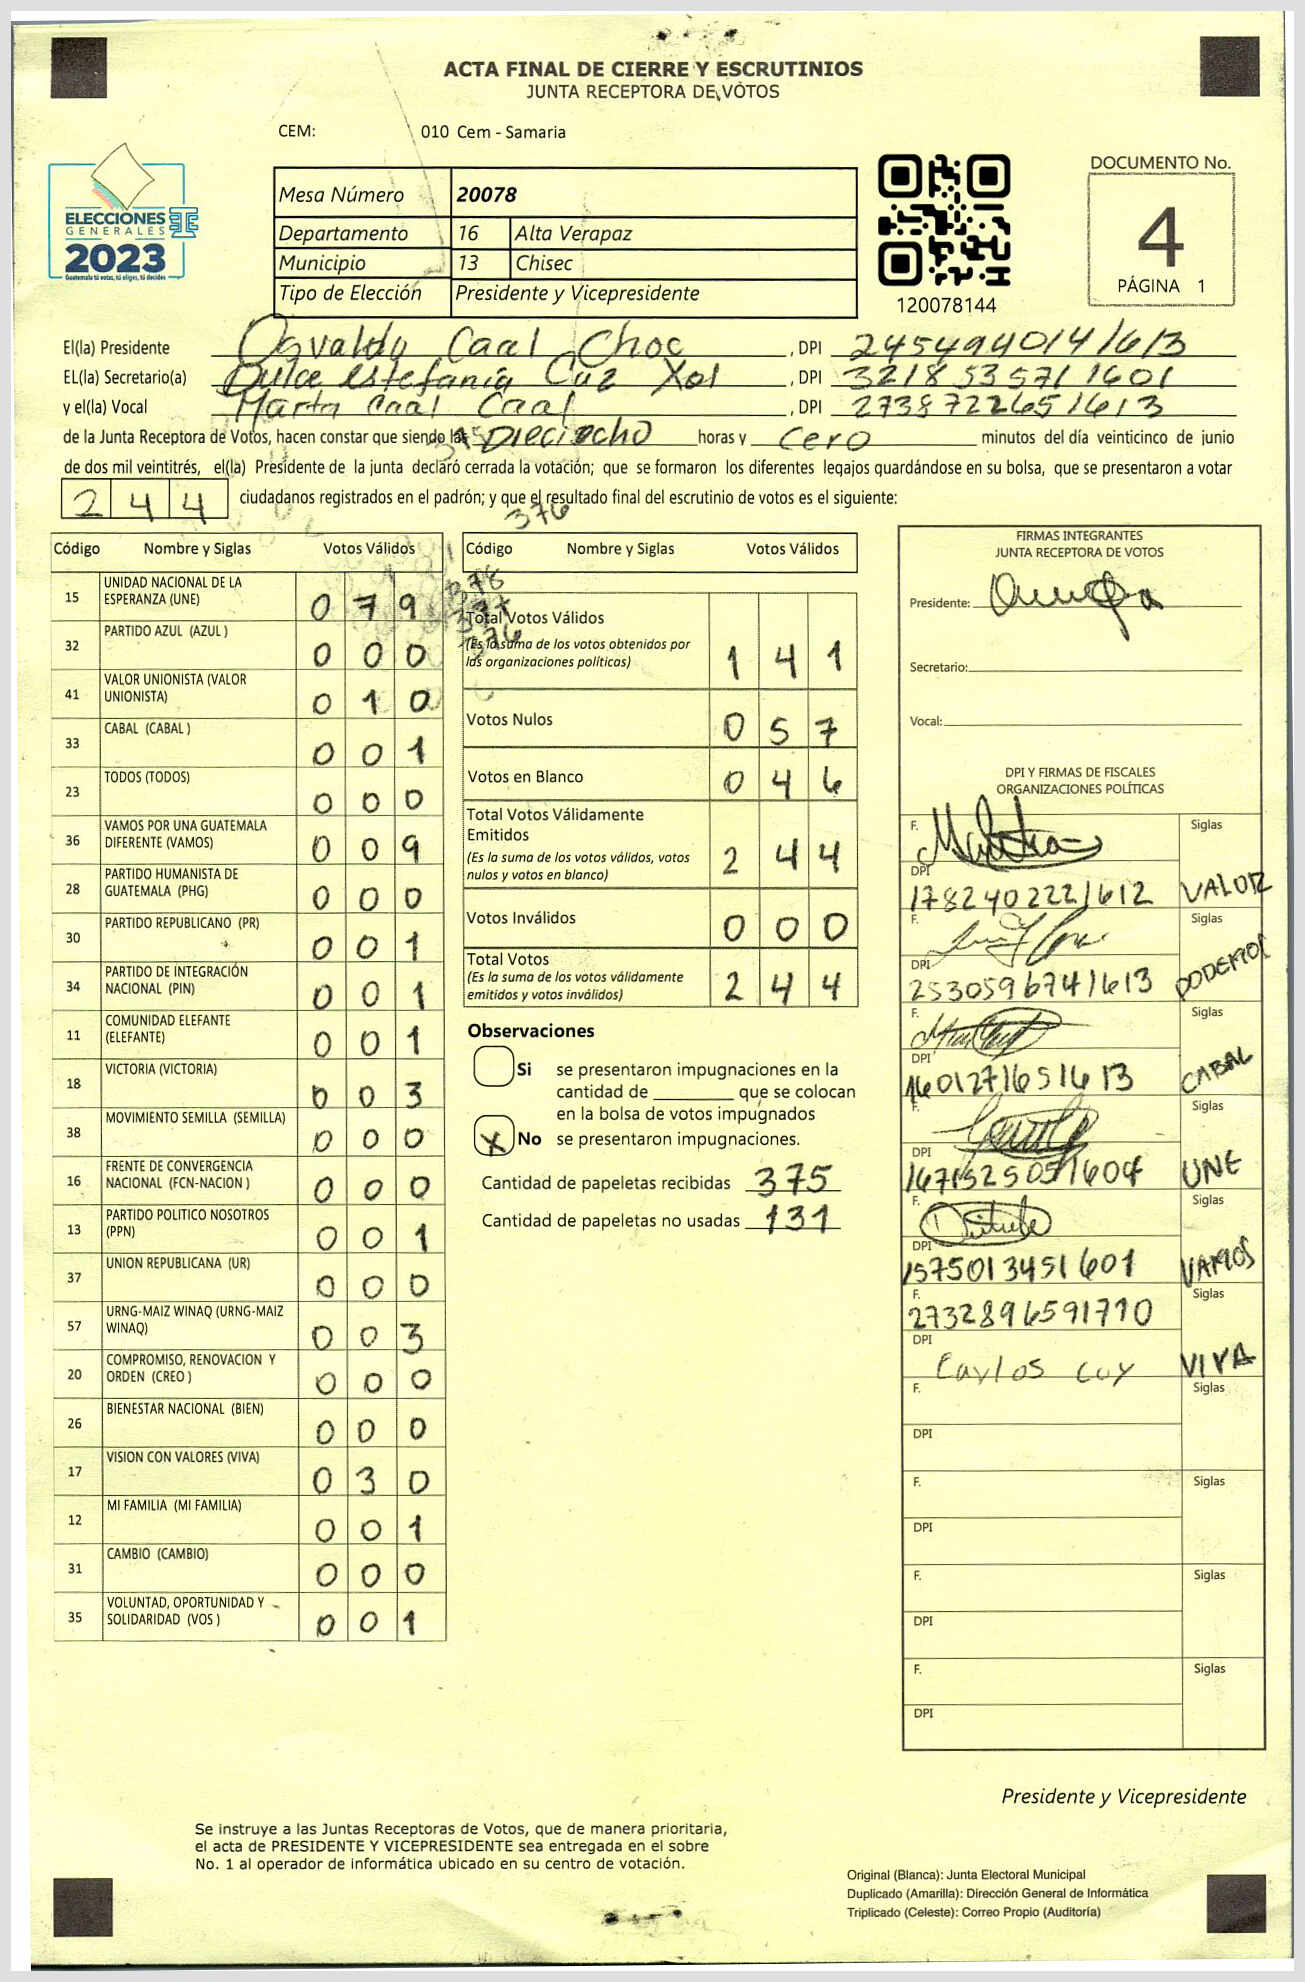 ACTA FINAL DE CIERRE Y ESCRUTINIOS
JUNTA RECEPTORA DE VOTOS
CEM: 010 Cem - Samaria
ELECCIONES
GENERALES
2023
Guatemala tú votas, tú eliges, tú decides
Mesa Número 20078
Departamento 16 Alta Verapaz
Municipio 13 Chisec
Tipo de Elección Presidente y Vicepresidente
120078144
DOCUMENTO No.
4
PÁGINA 1
El(la) Presidente Osvaldo Caal Choc , DPI 2454940141613
EL(la) Secretario(a) Dulce Estefanía Caz Xol , DPI 3218535711601
y el(la) Vocal Marta Caal Caal , DPI 2738722651613
de la Junta Receptora de Votos, hacen constar que siendo las Dieciocho horas y cero minutos del día veinticinco de junio
de dos mil veintitrés, el(la) Presidente de la junta declaró cerrada la votación; que se formaron los diferentes legajos quardándose en su bolsa, que se presentaron a votar
244 ciudadanos registrados en el padrón; y que el resultado final del escrutinio de votos es el siguiente:
375
376
378
377
376
Código Nombre y Siglas Votos Válidos
15 UNIDAD NACIONAL DE LA ESPERANZA (UNE) 079
32 PARTIDO AZUL (AZUL ) 000
41 VALOR UNIONISTA (VALOR UNIONISTA) 010
33 CABAL (CABAL ) 001
23 TODOS (TODOS) 000
36 VAMOS POR UNA GUATEMALA DIFERENTE (VAMOS) 009
28 PARTIDO HUMANISTA DE GUATEMALA (PHG) 000
30 PARTIDO REPUBLICANO (PR) 001
34 PARTIDO DE INTEGRACIÓN NACIONAL (PIN) 001
11 COMUNIDAD ELEFANTE (ELEFANTE) 001
18 VICTORIA (VICTORIA) 003
38 MOVIMIENTO SEMILLA (SEMILLA) 000
16 FRENTE DE CONVERGENCIA NACIONAL (FCN-NACION ) 000
13 PARTIDO POLITICO NOSOTROS (PPN) 001
37 UNION REPUBLICANA (UR) 000
57 URNG-MAIZ WINAQ (URNG-MAIZ WINAQ) 003
20 COMPROMISO, RENOVACION Y ORDEN (CREO ) 000
26 BIENESTAR NACIONAL (BIEN) 000
17 VISION CON VALORES (VIVA) 030
12 MI FAMILIA (MI FAMILIA) 001
31 CAMBIO (CAMBIO) 000
35 VOLUNTAD, OPORTUNIDAD Y SOLIDARIDAD (VOS ) 001
Código Nombre y Siglas Votos Válidos
Total Votos Válidos
(Es la suma de los votos obtenidos por las organizaciones políticas) 141
Votos Nulos 057
Votos en Blanco 046
Total Votos Válidamente Emitidos
(Es la suma de los votos válidos, votos nulos y votos en blanco) 244
Votos Inválidos 000
Total Votos
(Es la suma de los votos válidamente emitidos y votos inválidos) 244
Observaciones
Si se presentaron impugnaciones en la
cantidad de ________ que se colocan
en la bolsa de votos impugnados
X No se presentaron impugnaciones.
Cantidad de papeletas recibidas 375
Cantidad de papeletas no usadas 131
FIRMAS INTEGRANTES
JUNTA RECEPTORA DE VOTOS
Presidente:
Secretario:
Vocal:
DPI Y FIRMAS DE FISCALES
ORGANIZACIONES POLÍTICAS
F. Siglas
DPI 1782402221612 VALOR
F. Siglas
DPI 2530596741613 PODEMOS
F. Siglas
DPI 1601271651613 CABAL
F. Siglas
DPI 1671525051604 UNE
F. Siglas
DPI 1575013451601 VAMOS
F. 2732896591710 Siglas
DPI Carlos Coy VIVA
F. Siglas
DPI
F. Siglas
DPI
F. Siglas
DPI
F. Siglas
DPI
Presidente y Vicepresidente
Se instruye a las Juntas Receptoras de Votos, que de manera prioritaria,
el acta de PRESIDENTE Y VICEPRESIDENTE sea entregada en el sobre
No. 1 al operador de informática ubicado en su centro de votación.
Original (Blanca): Junta Electoral Municipal
Duplicado (Amarilla): Dirección General de Informática
Triplicado (Celeste): Correo Propio (Auditoría)